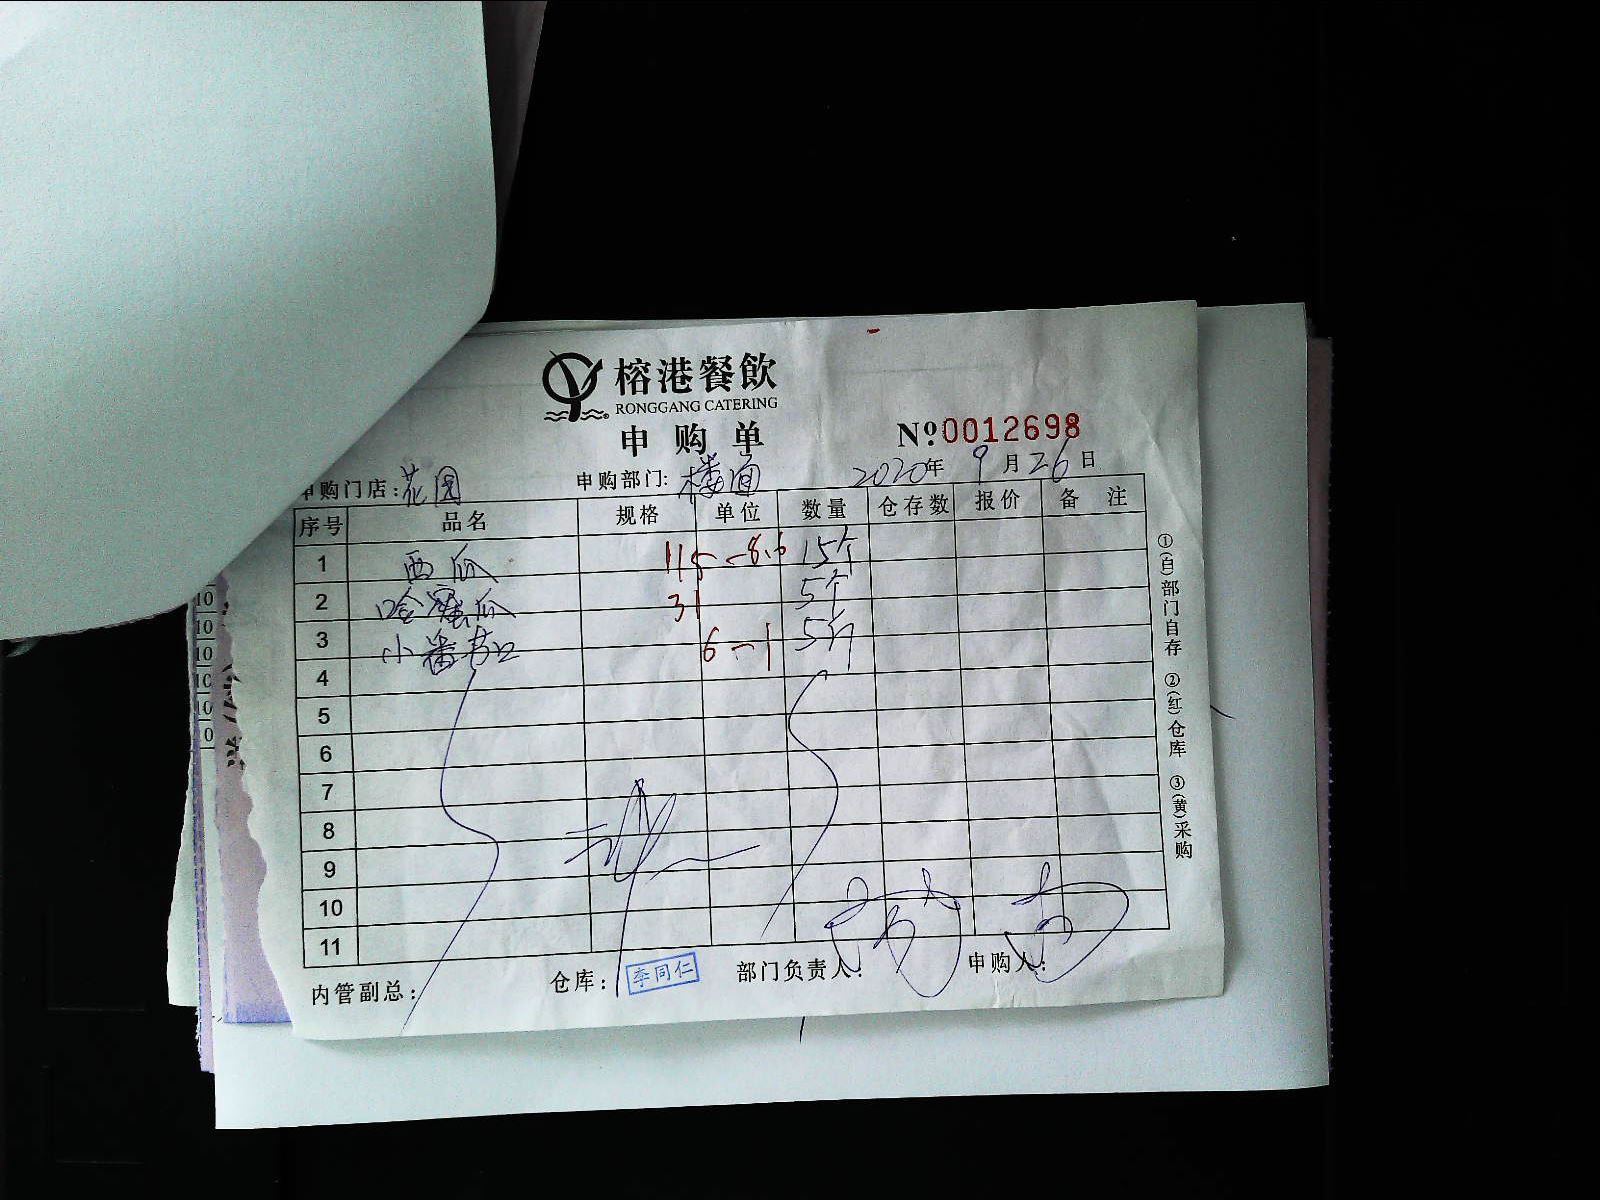 榕港餐飲
RONGGANG CATERING
申购单
No.0012698
申购门店:花园 申购部门:楼面 2020年9月26日
序号 品名 规格 单位 数量 仓存数 报价 备注
1 西瓜 115 -8.6 15个
2 哈蜜瓜 31 5个
3 小番茄 6-1 5斤
4
5
6
7
8
9
10
11
内管副总: 仓库: 李同仁 部门负责人: 申购人:
①(白)部门自存 ②(红)仓库 ③(黄)采购
10
10
10
10
10
0